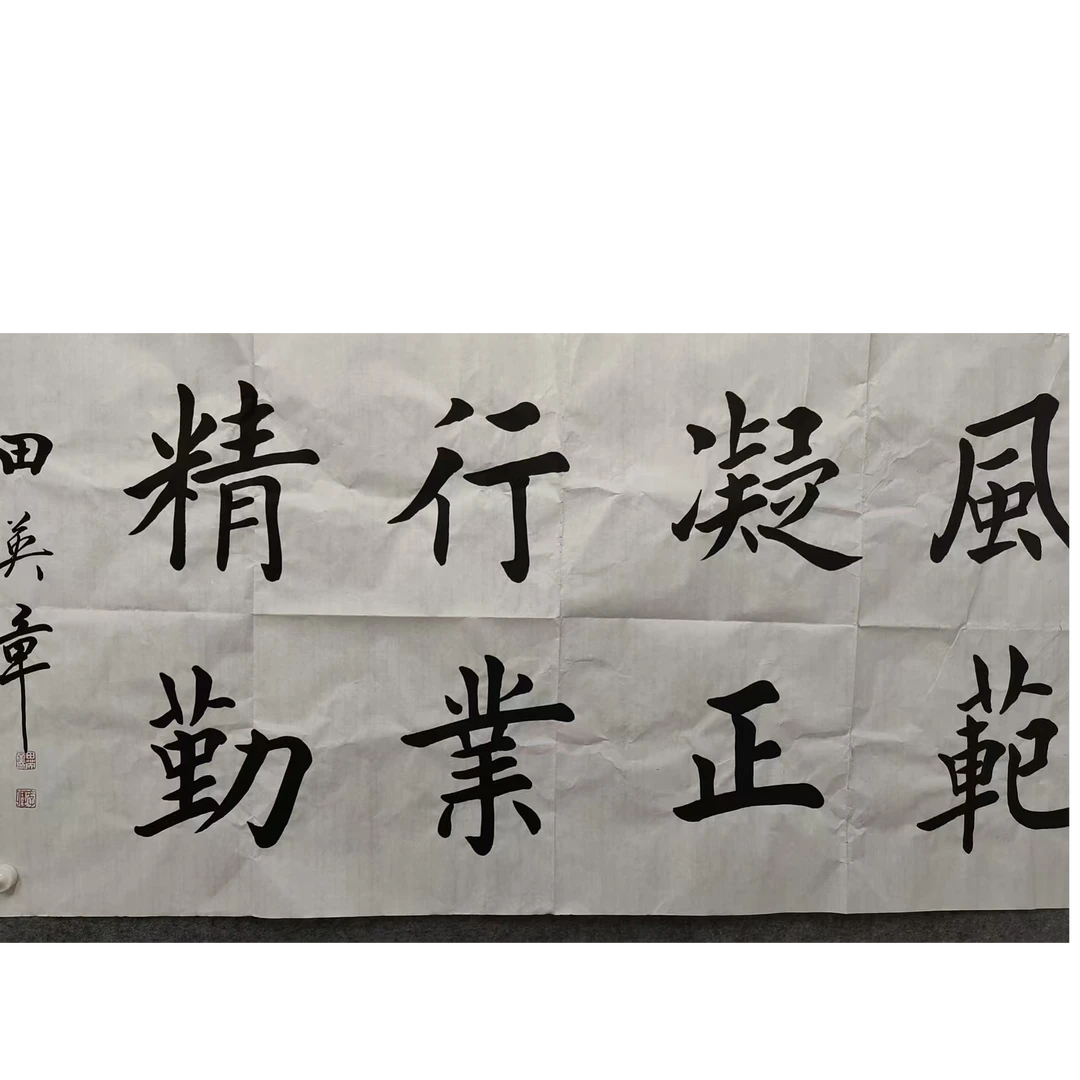 風範
凝正
行業
精勤
田英章